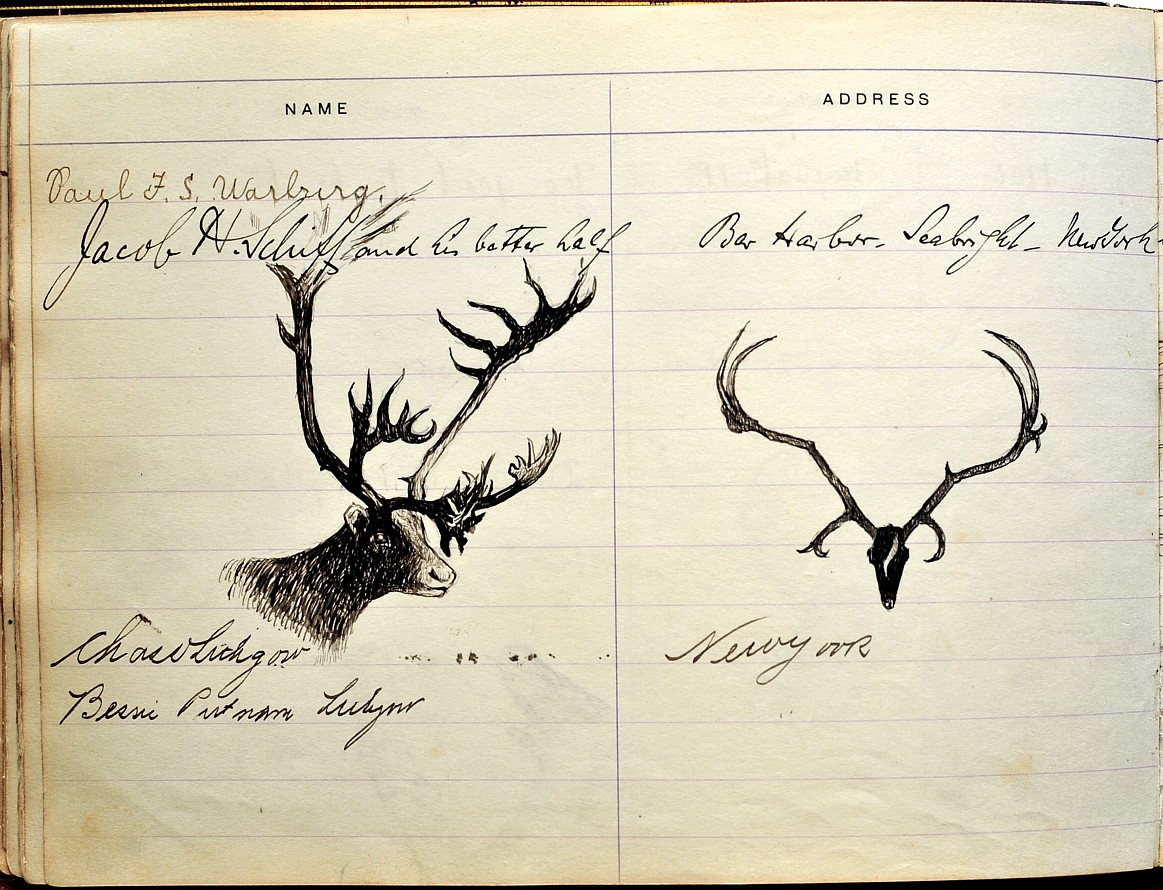 NAME ADDRESS
Paul F. S. Warburg.
Jacob H. Schiff and his better half Bar Harbor - Seabright - New York -
Chas Lithgow New York
Bessie Putnam Lithgow